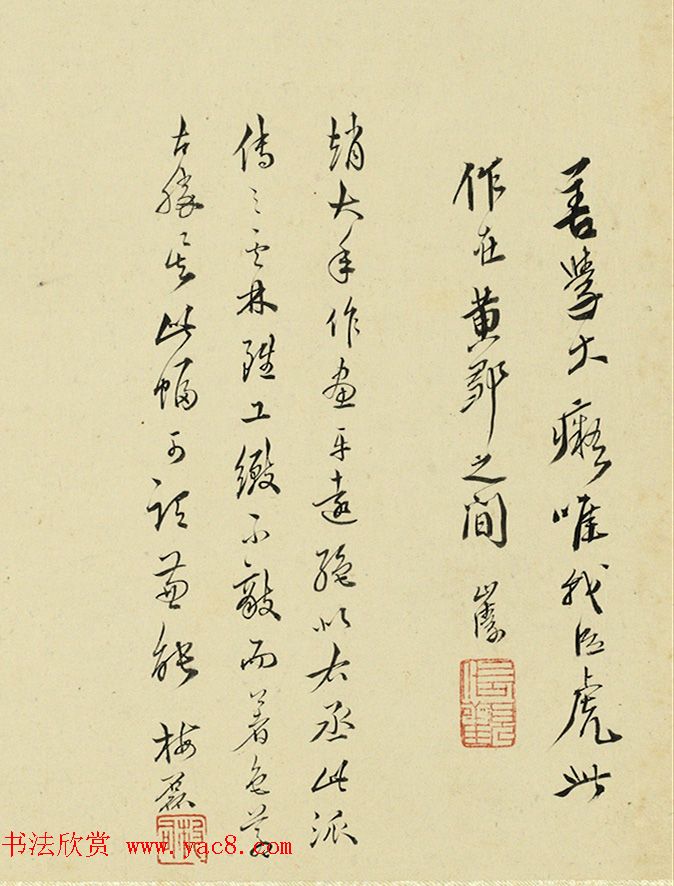 善學大癡唯我臥虎此
作在黃鄒之間
趙大年作畫平遠絕似右丞此派
傳之雲林雖工緻不敵而著色蒼
古勝矣此幅可謂兼能 梅磊
书法欣赏 www.yac8.com